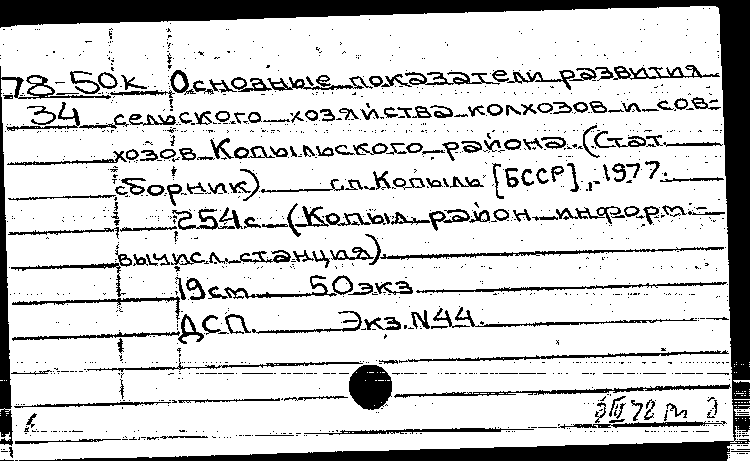 78-50к Основные показатели развития
34 сельского хозяйства колхозов и сов-
хозов Копыльского района. (Стат.
сборник). г.п. Копыль [БССР], 1977.
254с. (Копыл. район. информ.-
вычисл. станция).
19см. 50экз.
ДСП. Экз.N44.
III 78